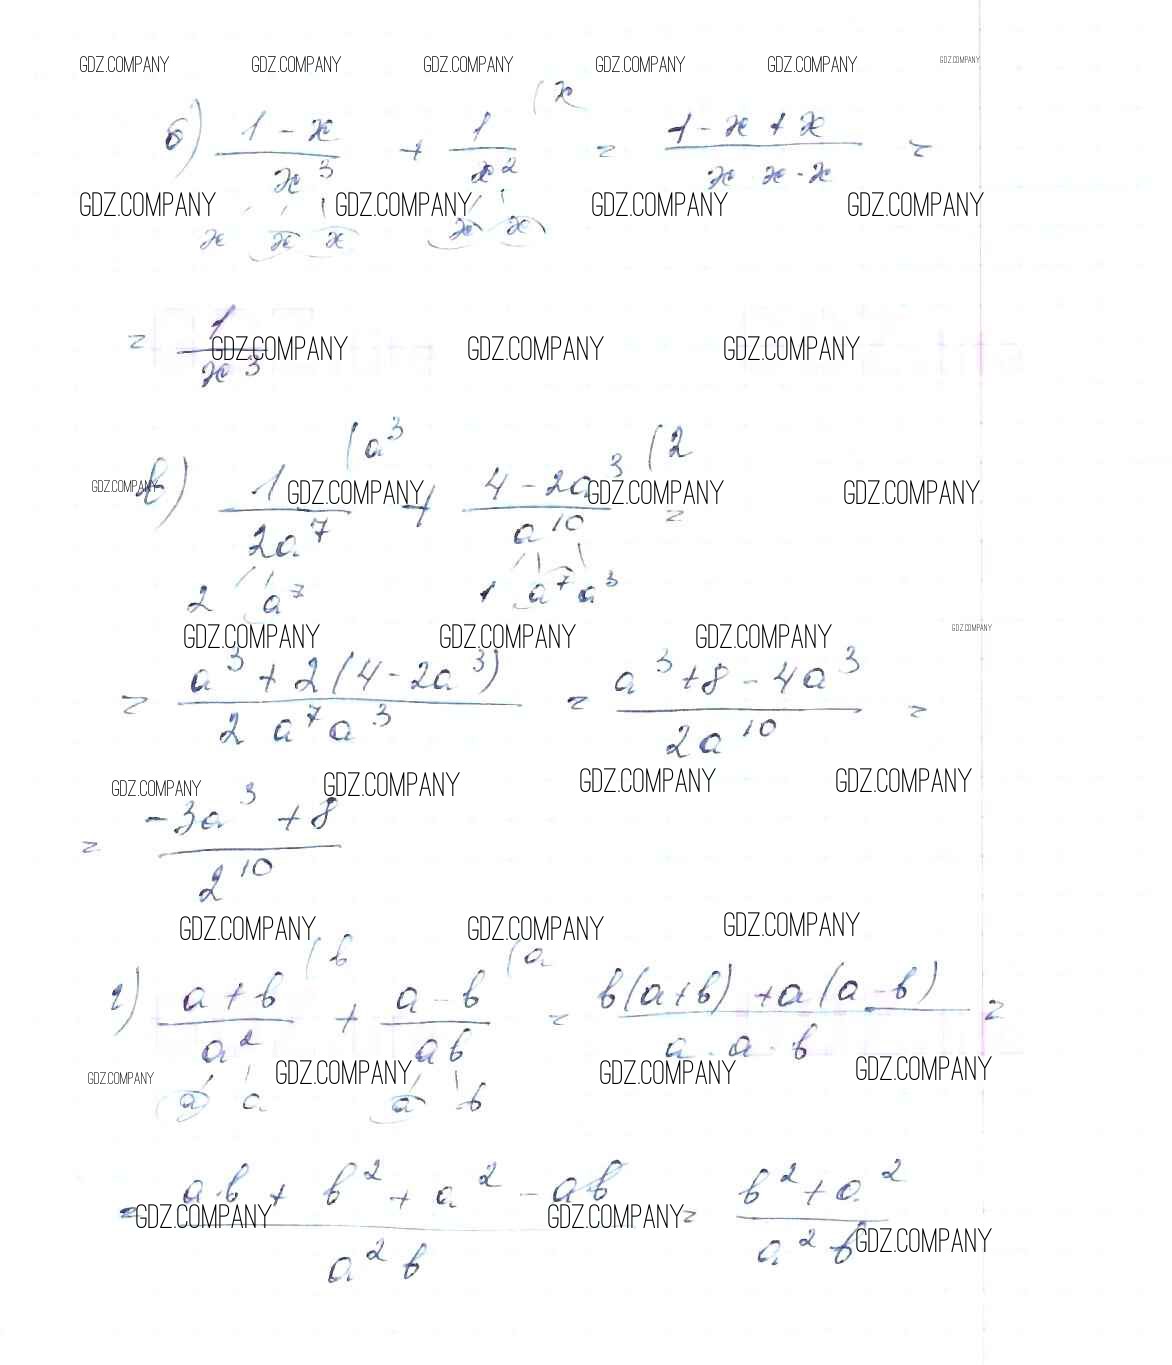 GDZ.COMPANY GDZ.COMPANY GDZ.COMPANY GDZ.COMPANY GDZ.COMPANY GDZ.COMPANY
б) (1 - x)/x³ + 1/x² (x = (1 - x + x)/(x x · x) =
GDZ.COMPANY GDZ.COMPANY GDZ.COMPANY GDZ.COMPANY
x x x x x
= 1/x³
GDZ.COMPANY GDZ.COMPANY GDZ.COMPANY
в) 1/(2a⁷) (a³ + (4 - 2a³)/a¹⁰ (2 =
GDZ.COMPANY GDZ.COMPANY GDZ.COMPANY GDZ.COMPANY
2 a⁷ 1 a⁷ a³
GDZ.COMPANY GDZ.COMPANY GDZ.COMPANY GDZ.COMPANY
= (a³ + 2(4 - 2a³))/(2 a⁷ a³) = (a³ + 8 - 4a³)/(2a¹⁰) =
GDZ.COMPANY GDZ.COMPANY GDZ.COMPANY GDZ.COMPANY
= (-3a³ + 8)/2¹⁰
GDZ.COMPANY GDZ.COMPANY GDZ.COMPANY
г) (a + b)/a² (b + (a - b)/(ab) (a = (b(a + b) + a(a - b))/(a · a · b) =
GDZ.COMPANY GDZ.COMPANY GDZ.COMPANY GDZ.COMPANY
a a a b
= (a·b + b² + a² - ab)/(a² b) = (b² + a²)/(a² b)
GDZ.COMPANY GDZ.COMPANY GDZ.COMPANY